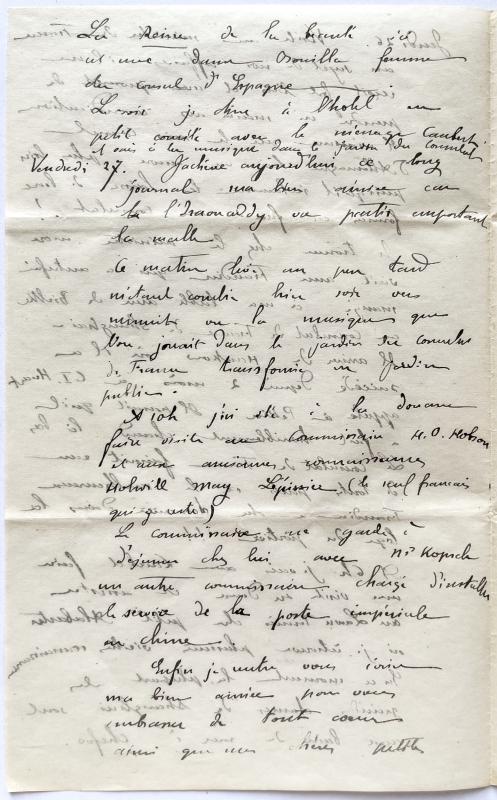 La Reine de la beauté ici
est une dame Osouilla femme
du consul d'Espagne
Le soir je dîne à l'hôtel en
petit comité avec le ménage
et vais à la musique dans le jardin du consulat
Vendredi 27. J'achève aujourd'hui ce long
journal ma bien aimée car
l'Iraouaddy va partir emportant
la malle
Ce matin levé un peu tard
m'étant couché hier soir vers
minuit vu la musique que
l'on jouait dans le jardin du consulat
de France transformé en Jardin
public.
A 10h j'ai été à la douane
faire visite au commissaire H.O. Hobson
et aux anciennes connaissances
Holwill May Lépissier (le seul français
qui y reste)
Le commissaire me garde à
déjeuner chez lui avec Mr Kopsch
un autre commissaire chargé d'installer
le service de la poste impériale
en chine
Enfin je rentre vous écrire
ma bien aimée pour vous
embrasser de tout coeur
ainsi que mes chères petites